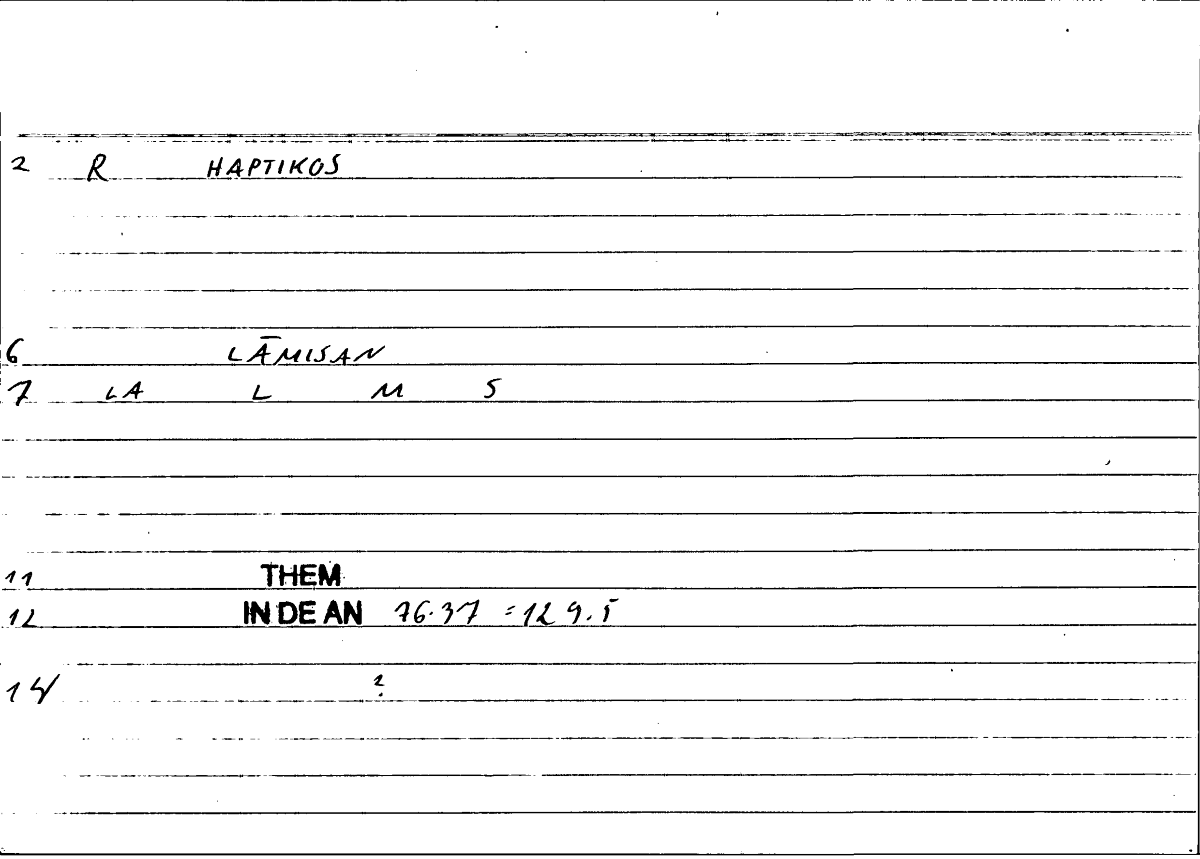 2 R HAPTIKOS
6 LĀMISAN
7 LA L M S
11 THEM
12 IN DE AN 76.37 = 129.5
14 ?